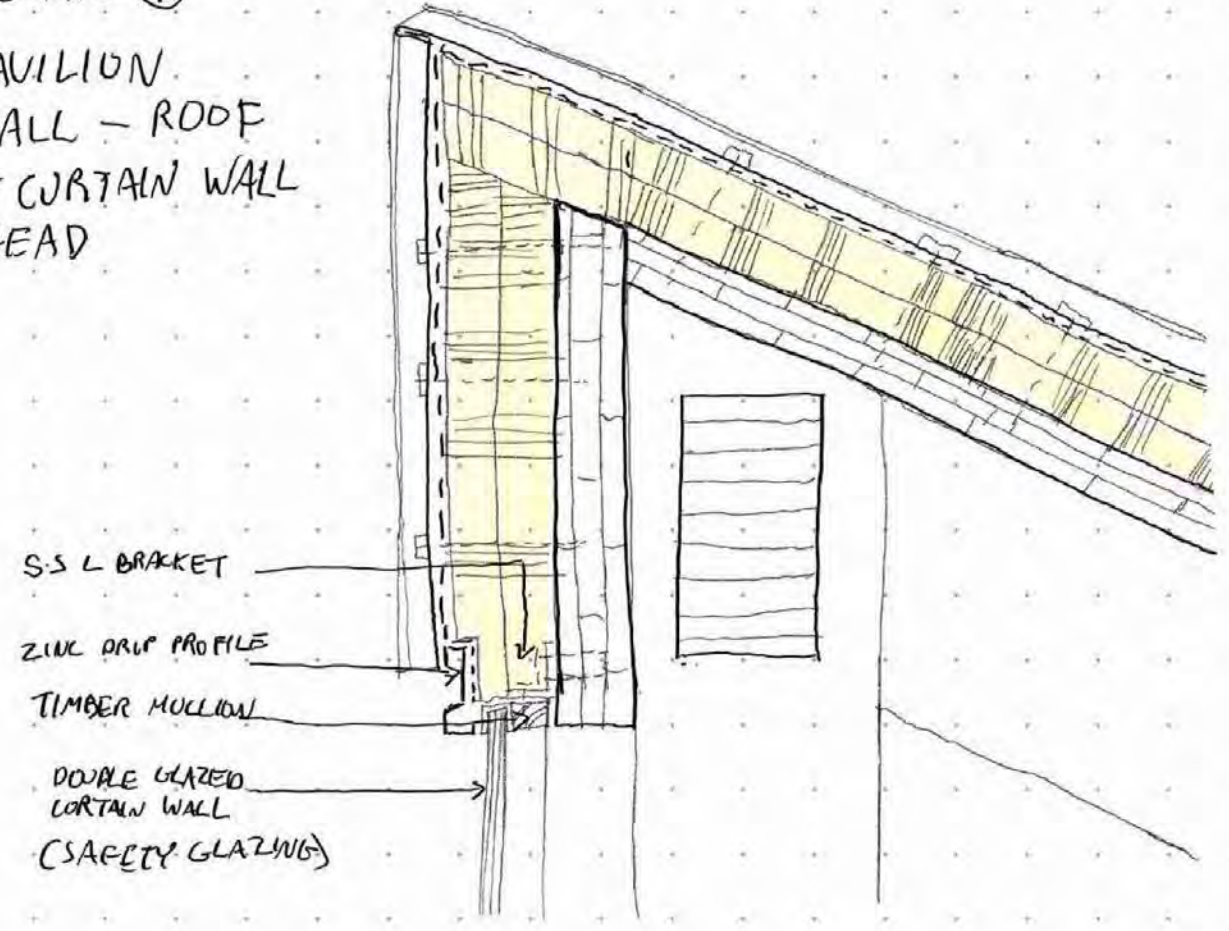 AVILION
ALL - ROOF
CURTAIN WALL
EAD
S.S L BRACKET
ZINC DRIP PROFILE
TIMBER MULLION
DOUBLE GLAZED
CORTAIN WALL
(SAFETY GLAZING)